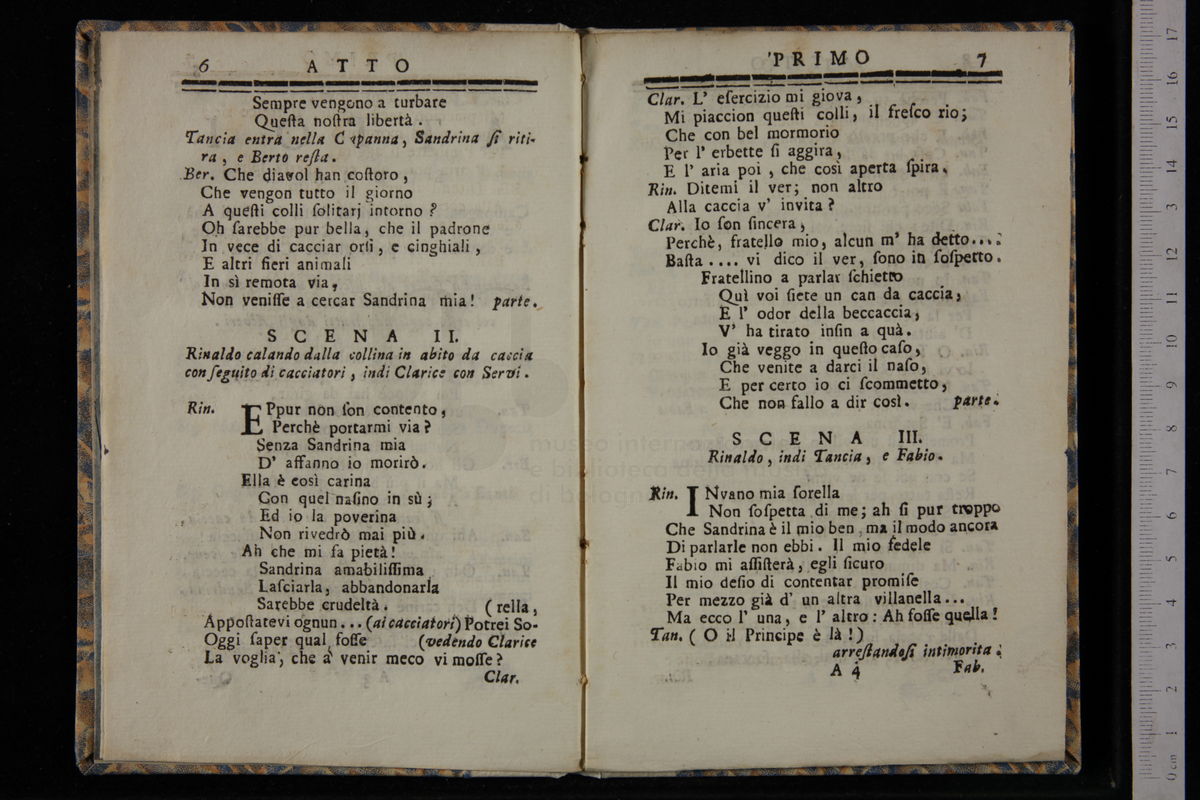 6 ATTO
Sempre vengono a turbare
Queſta noſtra libertà.
Tancia entra nella Capanna, Sandrina ſi riti-
ra, e Berto reſta.
Ber. Che diavol han coſtoro,
Che vengon tutto il giorno
A queſti colli ſolitarj intorno?
Oh ſarebbe pur bella, che il padrone
In vece di cacciar orſi, e cinghiali,
E altri fieri animali
In sì remota via,
Non veniſſe a cercar Sandrina mia! parte.
SCENA II.
Rinaldo calando dalla collina in abito da caccia
con ſeguito di cacciatori, indi Clarice con Servi.
Rin. EPpur non ſon contento,
Perchè portarmi via?
Senza Sandrina mia
D' affanno io morirò.
Ella è così carina
Con quel naſino in sù;
Ed io la poverina
Non rivedrò mai più.
Ah che mi fa pietà!
Sandrina amabiliſſima
Laſciarla, abbandonarla
Sarebbe crudeltà. (rella,
Appoſtatevi ognun... (ai cacciatori) Potrei So-
Oggi ſaper qual foſſe (vedendo Clarice
La voglia, che a venir meco vi moſſe?
Clar.
'PRIMO 7
Clar. L' eſercizio mi giova,
Mi piaccion queſti colli, il freſco rio;
Che con bel mormorio
Per l' erbette ſi aggira,
E l' aria poi, che così aperta ſpira.
Rin. Ditemi il ver; non altro
Alla caccia v' invita?
Clar. Io ſon ſincera,
Perchè, fratello mio, alcun m' ha detto....
Baſta.... vi dico il ver, ſono in ſoſpetto.
Fratellino a parlar ſchietto
Quì voi ſiete un can da caccia,
E l' odor della beccaccia,
V' ha tirato inſin a quà.
Io già veggo in queſto caſo,
Che venite a darci il naſo,
E per certo io ci ſcommetto,
Che non fallo a dir così. parte.
SCENA III.
Rinaldo, indi Tancia, e Fabio.
Rin. INvano mia ſorella
Non ſoſpetta di me; ah ſi pur troppo
Che Sandrina è il mio ben, ma il modo ancora
Di parlarle non ebbi. Il mio fedele
Fabio mi aſſiſterà, egli ſicuro
Il mio deſio di contentar promiſe
Per mezzo già d' un altra villanella...
Ma ecco l' una, e l' altro: Ah foſſe quella!
Tan. (O il Principe è là!)
arreſtandoſi intimorita.
A 4 Fab.